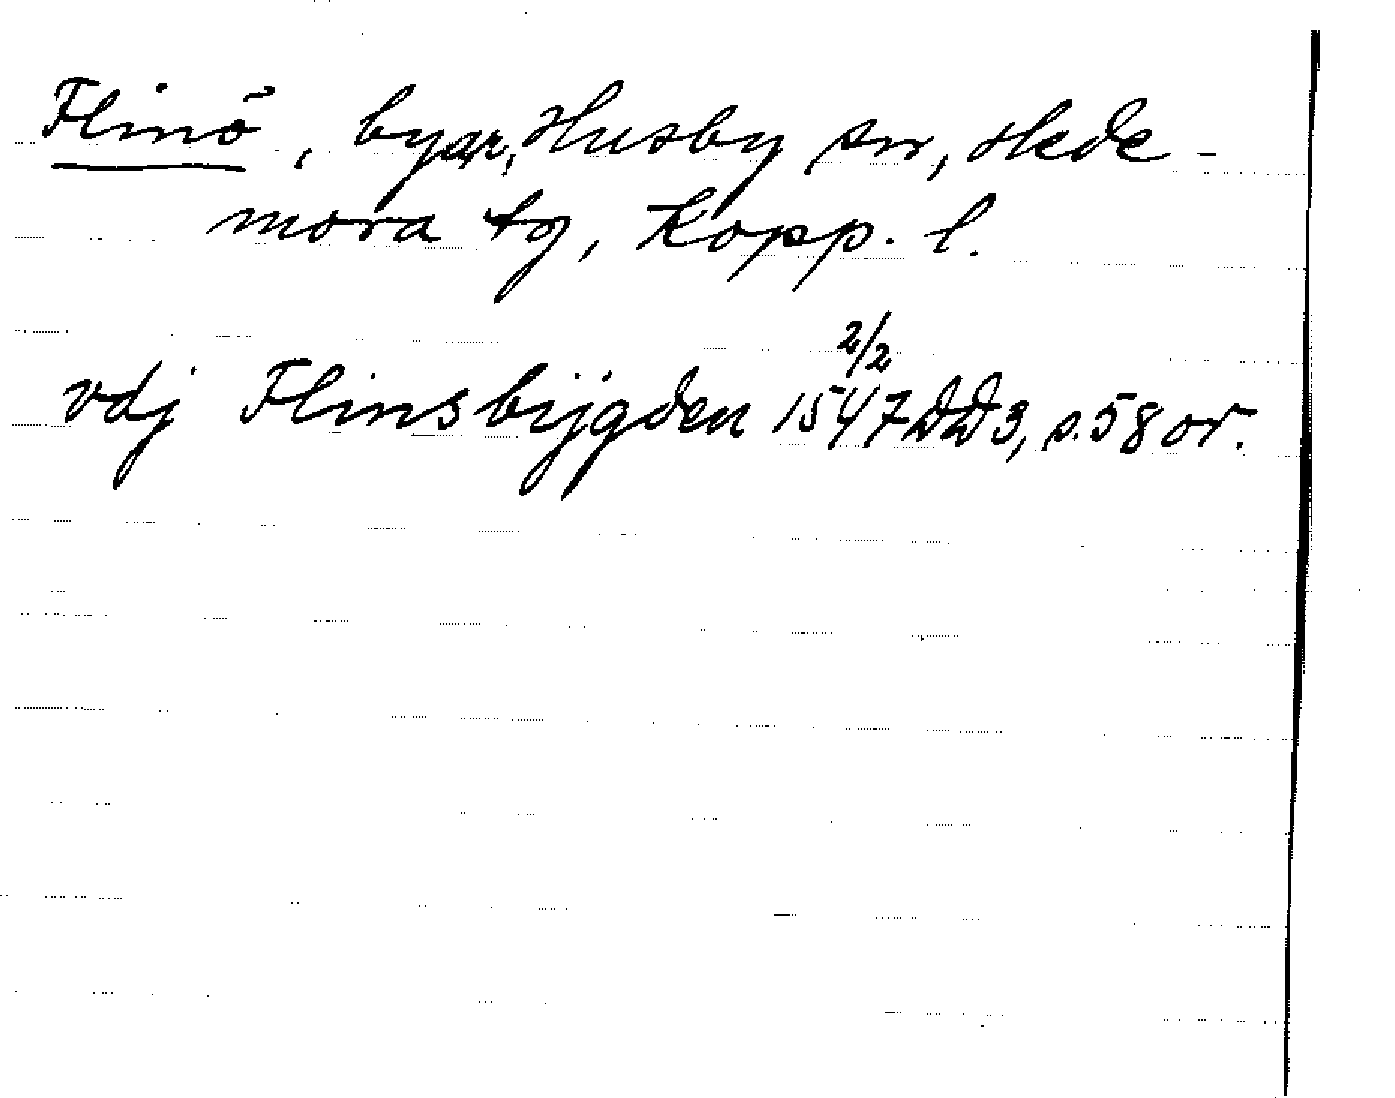 Flinö, byar, Husby sn, Hede-
mora tg, Kopp. l.
2/2
vdj Flinsbijgden 1547 DD 3, s. 58 or.